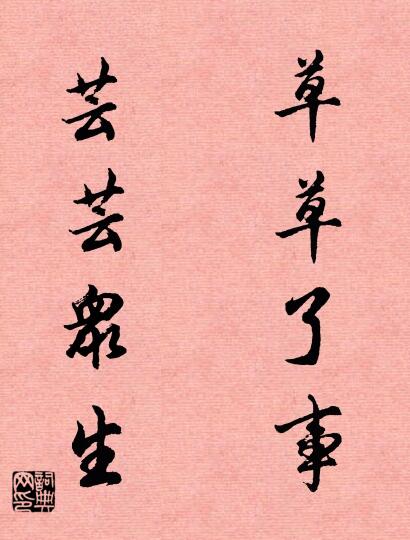 草草了事
芸芸眾生
詞典
网印